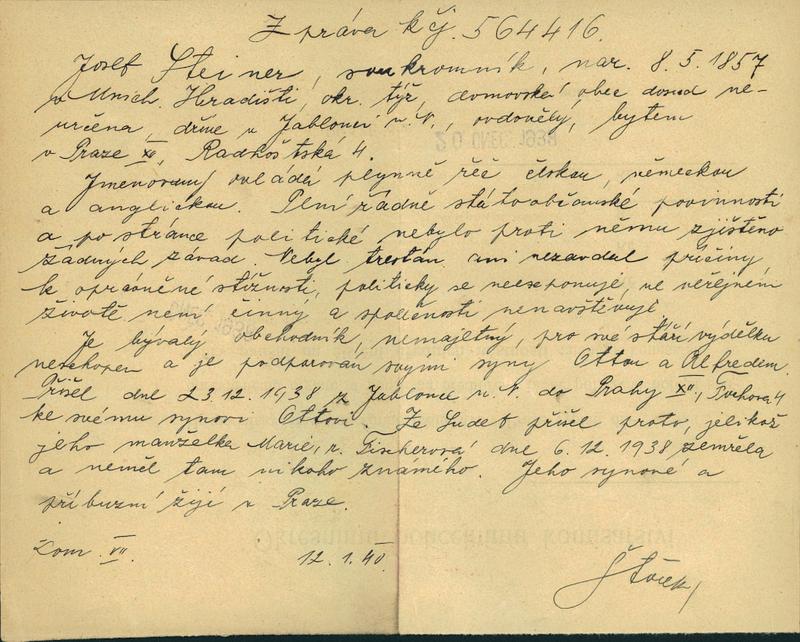 Zpráva k čj. 564416.
Josef Steiner, soukromník, nar. 8.5.1857
v Mnich. Hradišti, okr. týž, domovská obec dosud ne-
určena, dříve v Jablonci n. N., ovdovělý, bytem
v Praze XII, Radhoštská 4.
Jmenovaný ovládá plynně řeč českou, německou
a anglickou. Plní řádně státoobčanské povinnosti
a po stránce politické nebylo proti němu zjištěno
žádných závad. Nebyl trestán ani nezavdal příčiny
k oprávněné stížnosti, politicky se neexponuje, ve veřejném
životě není činný a společnosti nenavštěvuje.
Je bývalý obchodník, nemajetný, pro své stáří výdělku
neschopen a je podporován svými syny Ottou a Alfredem.
Přišel dne 23.12.1938 z Jablonce n. N. do Prahy XII, 4
ke svému synovi Ottovi. Ze Sudet přišel proto, jelikož
jeho manželka Marie, r. Fischerová dne 6.12.1938 zemřela
a neměl tam nikoho známého. Jeho synové a
příbuzní žijí v Praze.
Kom. VII. 12.1.40.